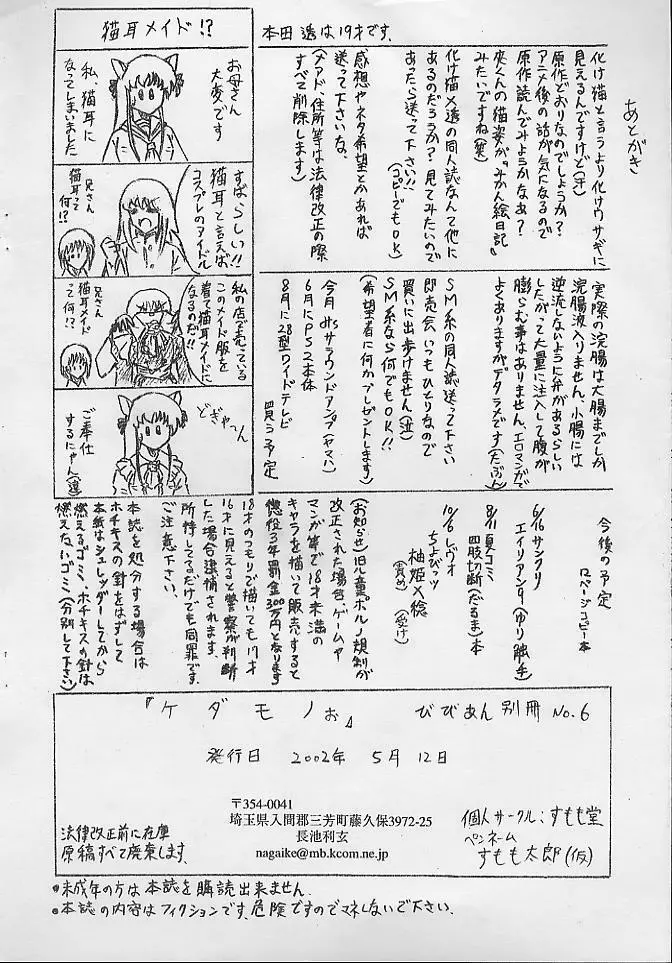 あとがき
化け猫と言うより化けウサギに
見えるんですけど(汗)
原作どおりなのでしょうか?
アニメ後の話が気になるので
原作読んでみようかなあ?
夾くんの猫姿が『みかん絵日記』
みたいですね(笑)
化け猫×透の同人誌なんて他に
あるのだろうか?見てみたいので
あったら送って下さい!!
(コピーでもOK)
感想やネタ希望とかあれば
送って下さいな。
(メアド、住所等は法律改正の際
すべて削除します)
本田透は19才です。
猫耳メイド!?
お母さん
大変です
私、猫耳に
なってしまいました
すばらしい!!
猫耳と言えば
コスプレのアイドル
兄さん
猫耳って
何!?
私の店で売っている
このメイド服を
着て猫耳メイドに
なるのだ!!
兄さん
猫耳メイド
って何!?
どぎゃーん
ご奉仕
するにゃん(透)
実際の浣腸は大腸までしか
浣腸液入りません。小腸には
逆流しないように弁があるらしい
したがって大量に注入して腹が
膨らむ事はありません。エロマンガで
よくありますがデタラメです(たぶん)
SM系の同人誌送って下さい
即売会いつもひとりなので
買いに出歩けません(泣)
SM系なら何でもOK!!
(希望者に何かプレゼントします)
今月 サラウンドアンプ(ヤマハ)
6月にPS2本体
8月に28型ワイドテレビ
買う予定
今後の予定
ロページコピー本
6/16 サンクリ
エイリアン9(ゆり触手)
8/11 夏コミ
四肢切断(だるま)本
10/6 レヴォ
ちょびっツ
柚姫×稔
(責め)(受け)
(お知らせ)旧児童ポルノ規制が
改正された場合、ゲームや
マンガ等で18才未満の
キャラを描いて販売すると
懲役3年罰金300万円となります
18才のつもりで描いても17才
16才に見えると警察が判断
した場合逮捕されます。
所持してるだけでも同罪です。
ご注意下さい。
本誌を処分する場合は
ホチキスの針をはずして
本紙はシュレッダーしてから
燃えるゴミ、ホチキスの針は
燃えないゴミ(分別して下さい)
『ケダモノぉ』 びびあん別冊 No.6
発行日 2002年 5月 12日
〒354-0041
埼玉県入間郡三芳町藤久保3972-25
長池利玄
nagaike@mb.kcom.ne.jp
法律改正前に在庫
原稿すべて廃棄します。
個人サークル:すもも堂
ペンネーム
すもも太郎(仮)
●未成年の方は本誌を購読出来ません。
●本誌の内容はフィクションです。危険ですのでマネしないで下さい。